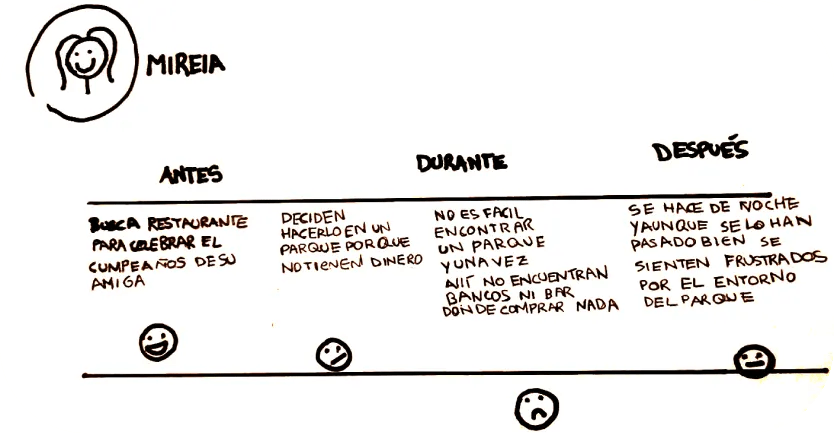 MIREIA
ANTES
DURANTE
DESPUÉS
BUSCA RESTAURANTE
PARA CELEBRAR EL
CUMPEAÑOS DE SU
AMIGA
DECIDEN
HACERLO EN UN
PARQUE PORQUE
NO TIENEN DINERO
NO ES FACIL
ENCONTRAR
UN PARQUE
Y UNA VEZ
ALLÍ NO ENCUENTRAN
BANCOS NI BAR
DONDE COMPRAR NADA
SE HACE DE NOCHE
Y AUNQUE SE LO HAN
PASADO BIEN SE
SIENTEN FRUSTRADOS
POR EL ENTORNO
DEL PARQUE